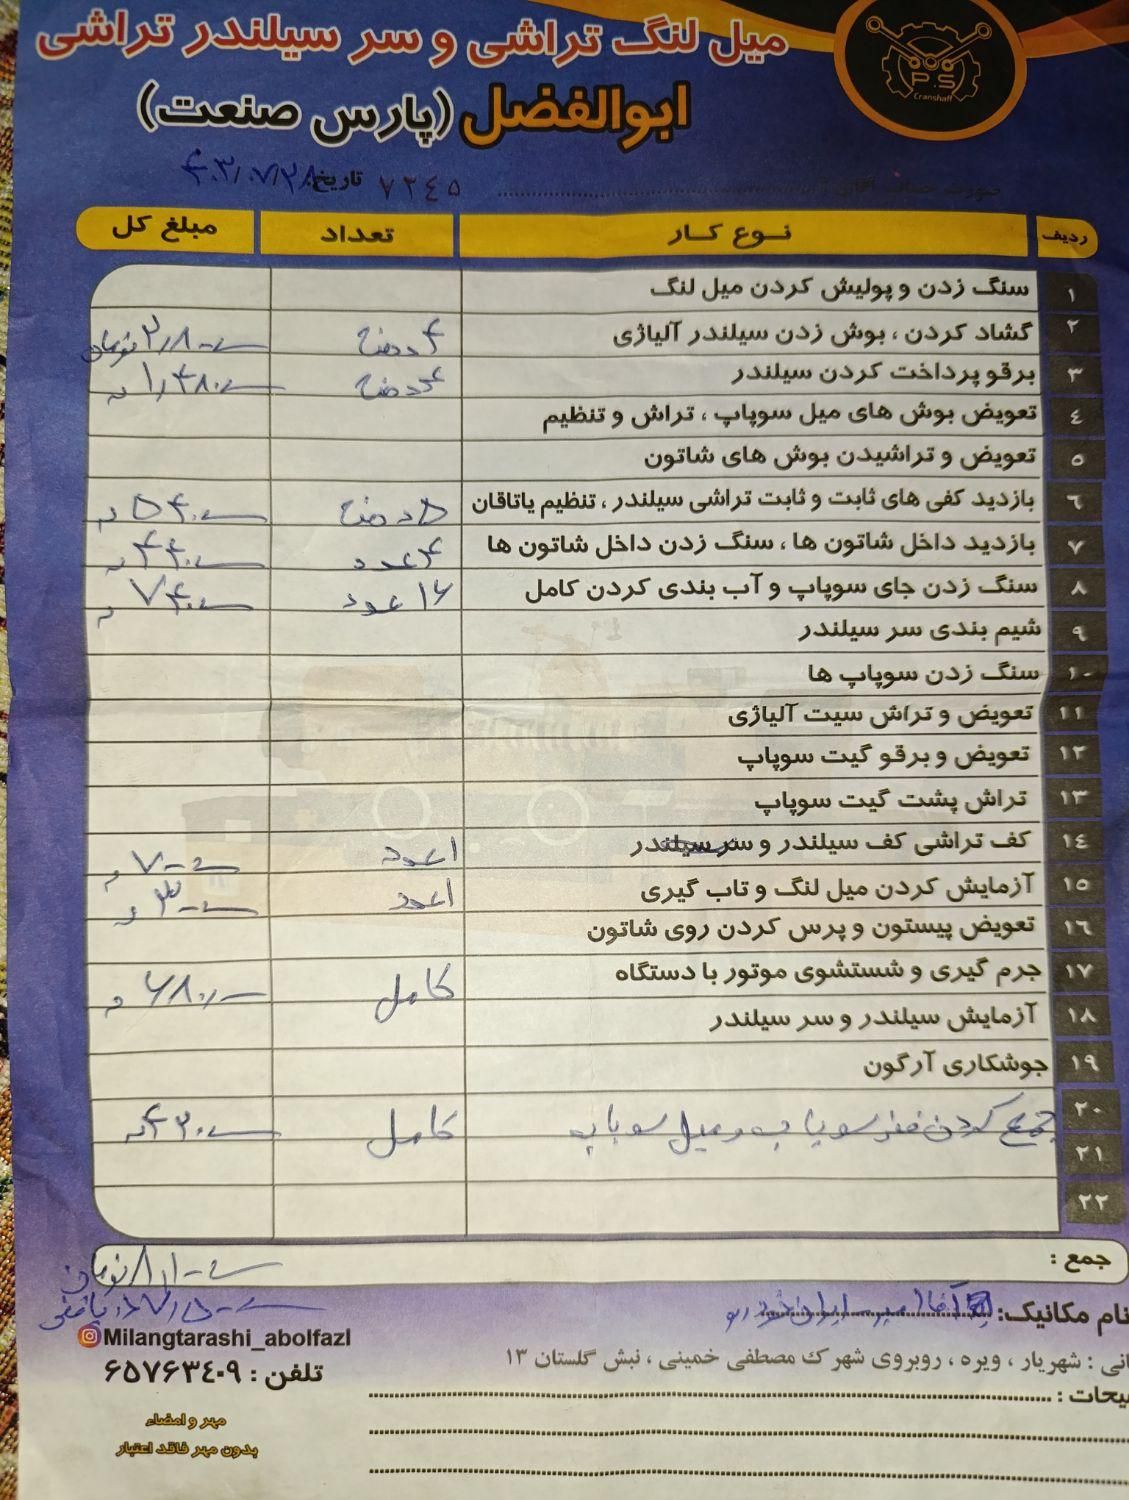 میل لنگ تراشی و سر سیلندر تراشی
P.S
Cranshaft
ابوالفضل (پارس صنعت)
صورت حساب آقای: ۷۲۴۵ تاریخ: ۴۰۳/۰۷/۲۸
ردیف نوع کار تعداد مبلغ کل
۱ سنگ زدن و پولیش کردن میل لنگ
۲ گشاد کردن ، بوش زدن سیلندر آلیاژی ۴ دهنه ۳٫۸۰۰ تومان
۳ برقو پرداخت کردن سیلندر ۴ دهنه ۱٫۴۸۰
۴ تعویض بوش های میل سوپاپ ، تراش و تنظیم
۵ تعویض و تراشیدن بوش های شاتون
۶ بازدید کفی های ثابت و ثابت تراشی سیلندر ، تنظیم یاتاقان ۵ دهنه ۵۴۰
۷ بازدید داخل شاتون ها ، سنگ زدن داخل شاتون ها ۴ عدد ۴۴۰
۸ سنگ زدن جای سوپاپ و آب بندی کردن کامل ۱۶ عدد ۷۴۰
۹ شیم بندی سر سیلندر
۱۰ سنگ زدن سوپاپ ها
۱۱ تعویض و تراش سیت آلیاژی
۱۲ تعویض و برقو گیت سوپاپ
۱۳ تراش پشت گیت سوپاپ
۱۴ کف تراشی کف سیلندر و سر سیلندر ۱ عدد ۷۰۰
۱۵ آزمایش کردن میل لنگ و تاب گیری ۱ عدد ۳۰۰
۱۶ تعویض پیستون و پرس کردن روی شاتون
۱۷ جرم گیری و شستشوی موتور با دستگاه کامل ۶۸۰
۱۸ آزمایش سیلندر و سر سیلندر
۱۹ جوشکاری آرگون
۲۰ جمع کردن فنر سوپاپ و میل سوپاپ کامل ۴۲۰
۲۱
۲۲
جمع : ۸٫۱۰۰ تومان
نام مکانیک: آقا امیر ایران خودرو ۷٫۵۰۰
Milangtarashi_abolfazl
انی : شهریار ، ویره ، روبروی شهرک مصطفی خمینی ، نبش گلستان ۱۳
تلفن : ۶۵۷۶۳۴۰۹
یحات :
مهر و امضاء
بدون مهر فاقد اعتبار